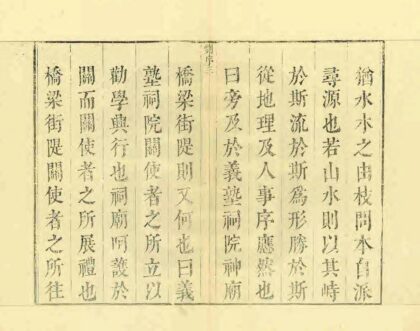 猶水木之由枝問本自派
尋源也若山水則以其峙
於斯流於斯爲形勝於斯
從地理及人事序應然也
曰旁及於義塾祠院神廟
橋梁街隄則又何也曰義
塾祠院關使者之所立以
勸學興行也祠廟呵護於
關而關使者之所展禮也
橋梁街隄關使者之所往